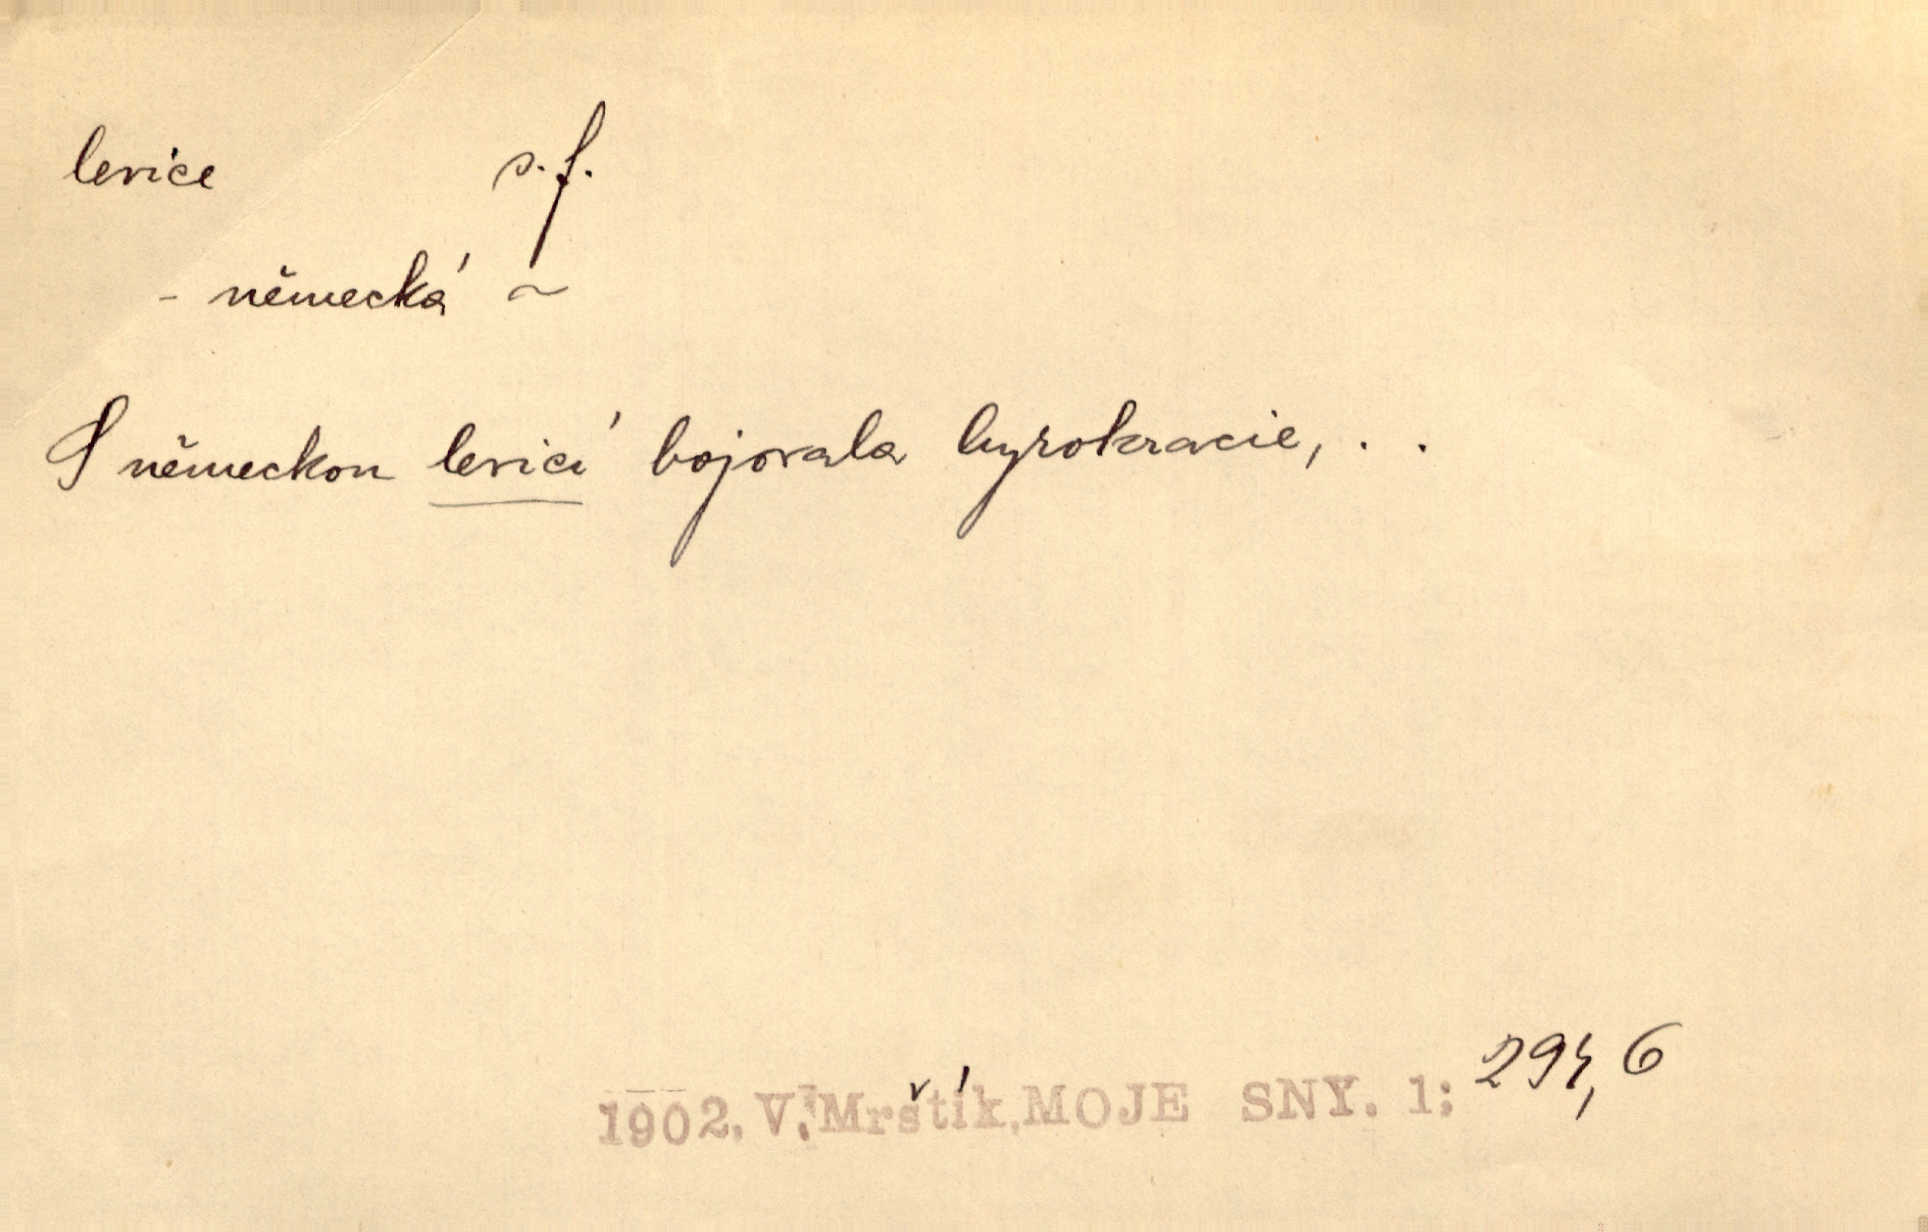 levice s. f.
- německá ~
S německou levicí bojovala byrokracie, . .
1902. V. Mrštík, MOJE SNY. 1; 294, 6